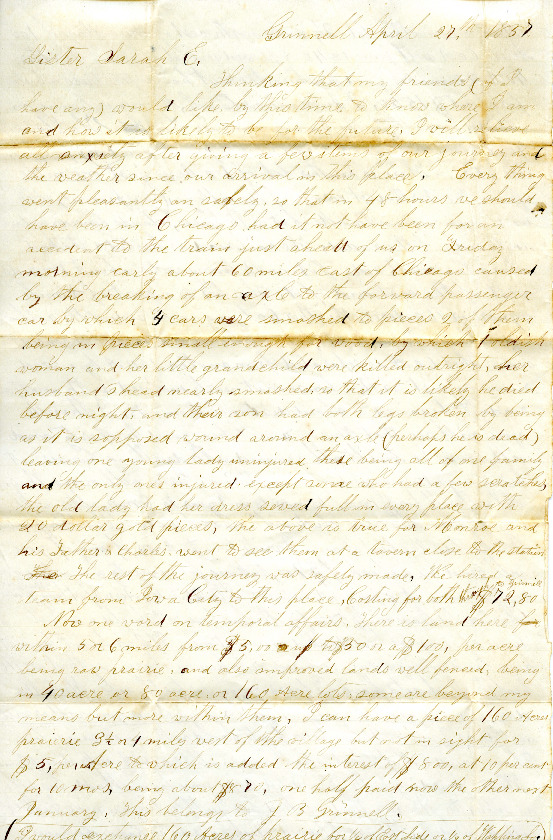 Grinnell April 27th 1857
Sister Sarah E.
Thinking that my friends (if I
have any) would like by this time to know where I am
and how it is likely to be for the future. I will relieve
all anxiety after giving a few items of our journey and
the weather since our arrival in this place. Every thing
went pleasantly an safely, so that in 48 hours we should
have been in Chicago had it not have been for an
accident to the train just ahead of us, on Friday
morning early about 60 miles east of Chicago caused
by the breaking of an axle to the forward passenger
car by which 4 cars were smashed to pieces 2 of them
being in pieces small enough for wood, by which 1 oldish
woman and her little grandchild were killed outright, her
husbands head nearly smashed, so that it is likely he died
before night, and their son had both legs broken by being
as it is sopposed wound around an axle (perhaps he is dead)
leaving one young lady uninjured these being all of one family
and the only ones injured except some who had a few scratches,
the old lady had her dress sewed full in every place with
20 dollar gold pieces, the above is true for Monroe and
his Father & Charles went to see them at a tavern close to the station
The rest of the journey was safely made, the hire
team from Iowa City to this place, Costing for both to Grinnell $72,80
Now one word on temporal affairs. There is land here
within 5 or 6 miles from $5,00 up to $50 or a $100, per acre
being raw prairie, and also improved lands well fenced, being
in 40 acre or 80 acre, or 160 Acre lots, some are beyond my
means but more within them, I can have a piece of 160 Acres
prairie 3½ or 4 miles west of the village but not in sight for
$5, per Acre to which is added the interest of $800, at 10 per cent
for 10 mos, being about $870, one half paid now the other next
January. This belongs to J B Grinnell.
(I would exchange 160 Acres of prairie for